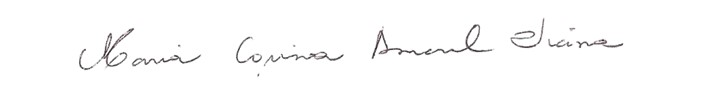 Maria Corina Amaral Viana